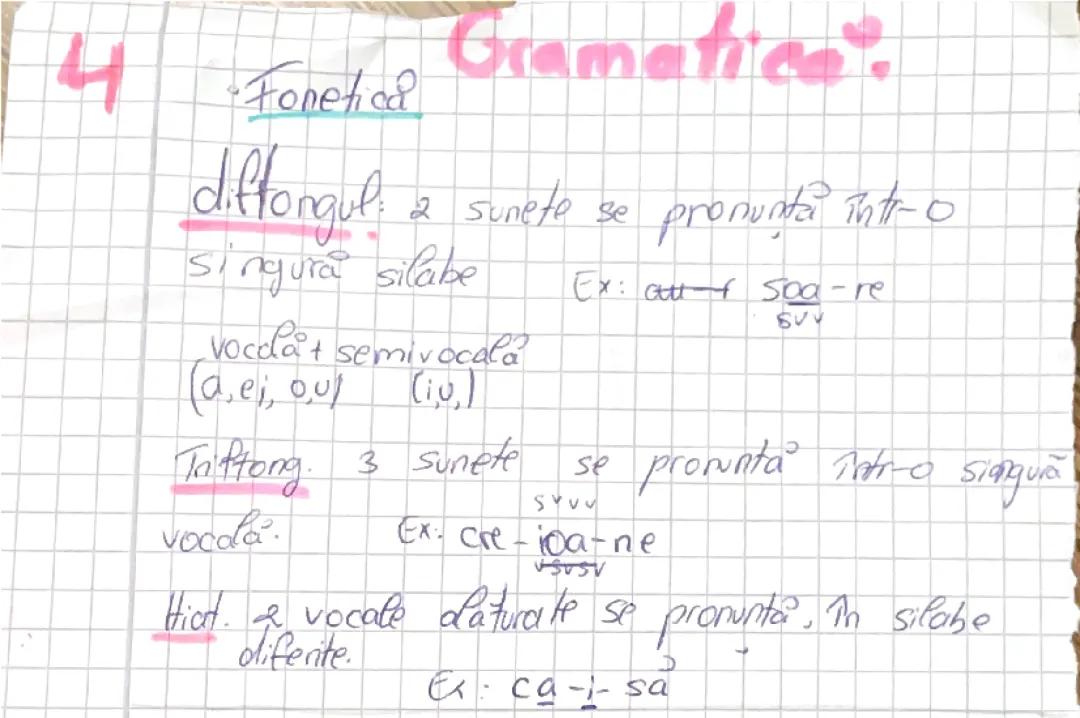 4 Gramatică.
· Fonetică
diftongul: 2 sunete se pronunță într-o
singură silabe Ex: soa-re
svv
vocală + semivocală
(a, e, i, o, u) (i, u,)
Triftong. 3 sunete se pronunta într-o siangură
svvv
vocală. Ex: cre-ioa-ne
vsvsv
Hiat. 2 vocale alaturate se pronunță, în silabe
diferite.
Ex: ca-i-să